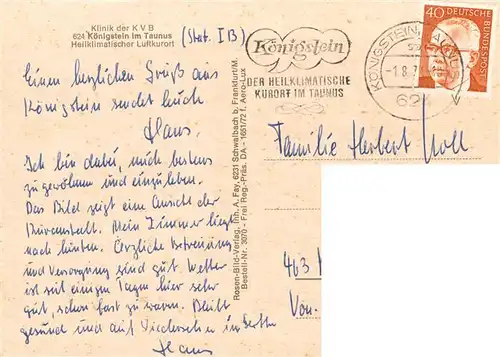 Klinik der K V B
624 Königstein im Taunus
Heilklimatischer Luftkurort
(Stat. I B)
Einen herzlichen Gruß aus
Königstein sendet Euch
Hans.
Ich bin dabei, mich bestens
zu gewöhnen und einzuleben.
Das Bild zeigt eine Ansicht der
Küranstalt. Mein Zimmer liegt
nach hinten. Ärztliche Betreuung
und Versorgung sind gut. Wetter
ist seit einigen Tagen hier sehr
gut, schon fast zu warm. Bleibt
gesund und auf Wiedersehen in
Hans
Rosen-Bild-Verlag, Inh. A. Fay, 6231 Schwalbach b. Frankfurt/M.
Bestell-Nr. 3070 - Frei Reg.-Präs. DA - 1651/72 f. Aero-Lux
Königstein
DER HEILKLIMATISCHE
KURORT IM TAUNUS
KÖNIGSTEIN, TAUNUS
-1.8.7
624
40 DEUTSCHE BUNDESPOST
Familie Herbert Noll
463
Von-